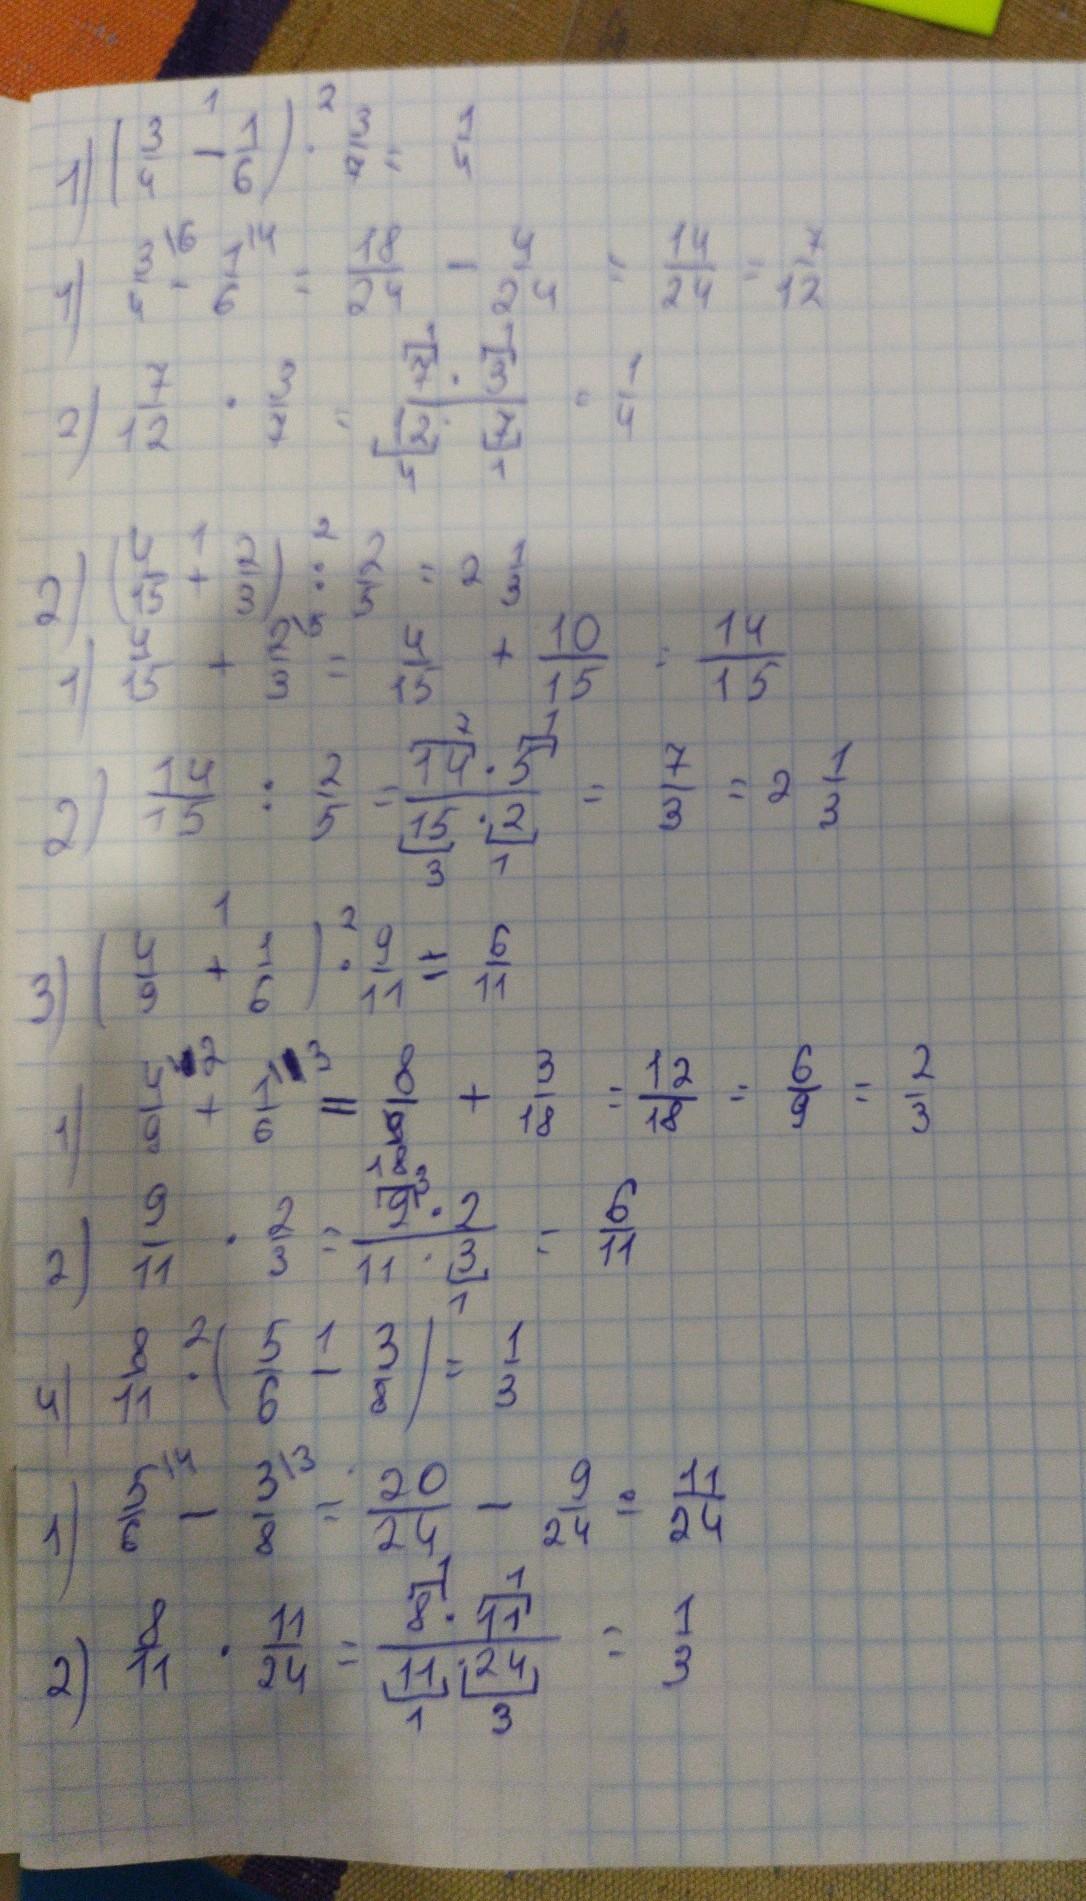 1) (3/4 - 1/6) · 3/7 = 1/4 1 2
1) 3/4 \6 - 1/6 \4 = 18/24 - 4/24 = 14/24 = 7/12
2) 7/12 · 3/7 = 7 1 · 3 1 / 12 4 · 7 1 = 1/4
2) (4/15 + 2/3) : 2/5 = 2 1/3 1 2
1) 4/15 + 2/3 \5 = 4/15 + 10/15 = 14/15
2) 14/15 : 2/5 = 14 7 · 5 1 / 15 3 · 2 1 = 7/3 = 2 1/3
3) (4/9 + 1/6) · 9/11 = 6/11 1 2
1) 4/9 \2 + 1/6 \3 = 8/18 + 3/18 = 12/18 = 6/9 = 2/3
2) 9/11 · 2/3 = 9 3 · 2 / 11 · 3 1 = 6/11
4) 8/11 · (5/6 - 3/8) = 1/3 2 1
1) 5/6 \4 - 3/8 \3 = 20/24 - 9/24 = 11/24
2) 8/11 · 11/24 = 8 1 · 11 1 / 11 1 · 24 3 = 1/3